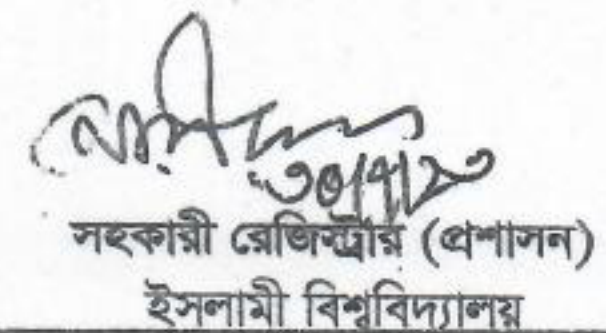 ৩০/৭/২৩
সহকারী রেজিস্ট্রার (প্রশাসন)
ইসলামী বিশ্ববিদ্যালয়